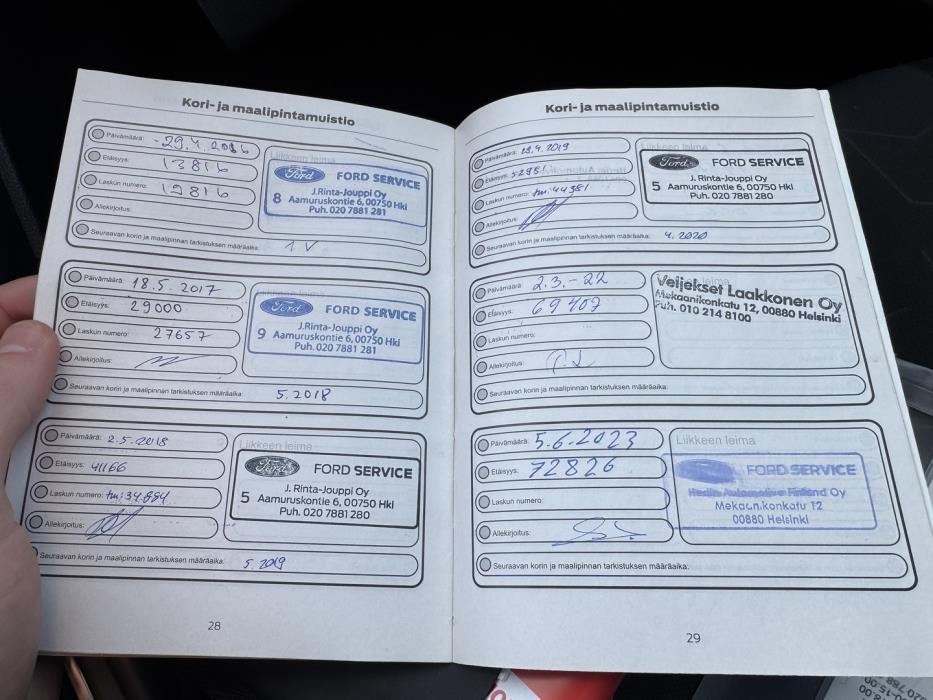 Kori- ja maalipintamuistio
Päivämäärä: 29.4.2016
Etäisyys: 13816
Laskun numero: 19816
Allekirjoitus:
Seuraavan korin ja maalipinnan tarkistuksen määräaika: 1 V
Liikkeen leima
Ford FORD SERVICE
8 J.Rinta-Jouppi Oy
Aamuruskontie 6, 00750 Hki
Puh. 020 7881 281
Päivämäärä: 18.5.2017
Etäisyys: 29000
Laskun numero: 27657
Allekirjoitus:
Seuraavan korin ja maalipinnan tarkistuksen määräaika: 5.2018
Ford FORD SERVICE
9 J.Rinta-Jouppi Oy
Aamuruskontie 6, 00750 Hki
Puh. 020 7881 281
Päivämäärä: 2.5.2018
Etäisyys: 41166
Laskun numero: tm: 34884
Allekirjoitus:
Seuraavan korin ja maalipinnan tarkistuksen määräaika: 5.2019
Liikkeen leima
Ford FORD SERVICE
5 J. Rinta-Jouppi Oy
Aamuruskontie 6, 00750 Hki
Puh. 020 7881 280
28
Kori- ja maalipintamuistio
Päivämäärä: 18.4.2019
Etäisyys: 52951
Laskun numero: tm: 44381
Allekirjoitus:
Seuraavan korin ja maalipinnan tarkistuksen määräaika: 4.2020
Liikkeen leima
Ford FORD SERVICE
5 J. Rinta-Jouppi Oy
Aamuruskontie 6, 00750 Hki
Puh. 020 7881 280
Päivämäärä: 2.3.-22
Etäisyys: 69407
Laskun numero:
Allekirjoitus:
Seuraavan korin ja maalipinnan tarkistuksen määräaika:
Veljekset Laakkonen Oy
Mekaanikonkatu 12, 00880 Helsinki
Puh. 010 214 8100
Päivämäärä: 5.6.2023
Etäisyys: 72826
Laskun numero:
Allekirjoitus:
Seuraavan korin ja maalipinnan tarkistuksen määräaika:
Liikkeen leima
FORD SERVICE
Hedin Automotive Finland Oy
Mekaanikonkatu 12
00880 Helsinki
29